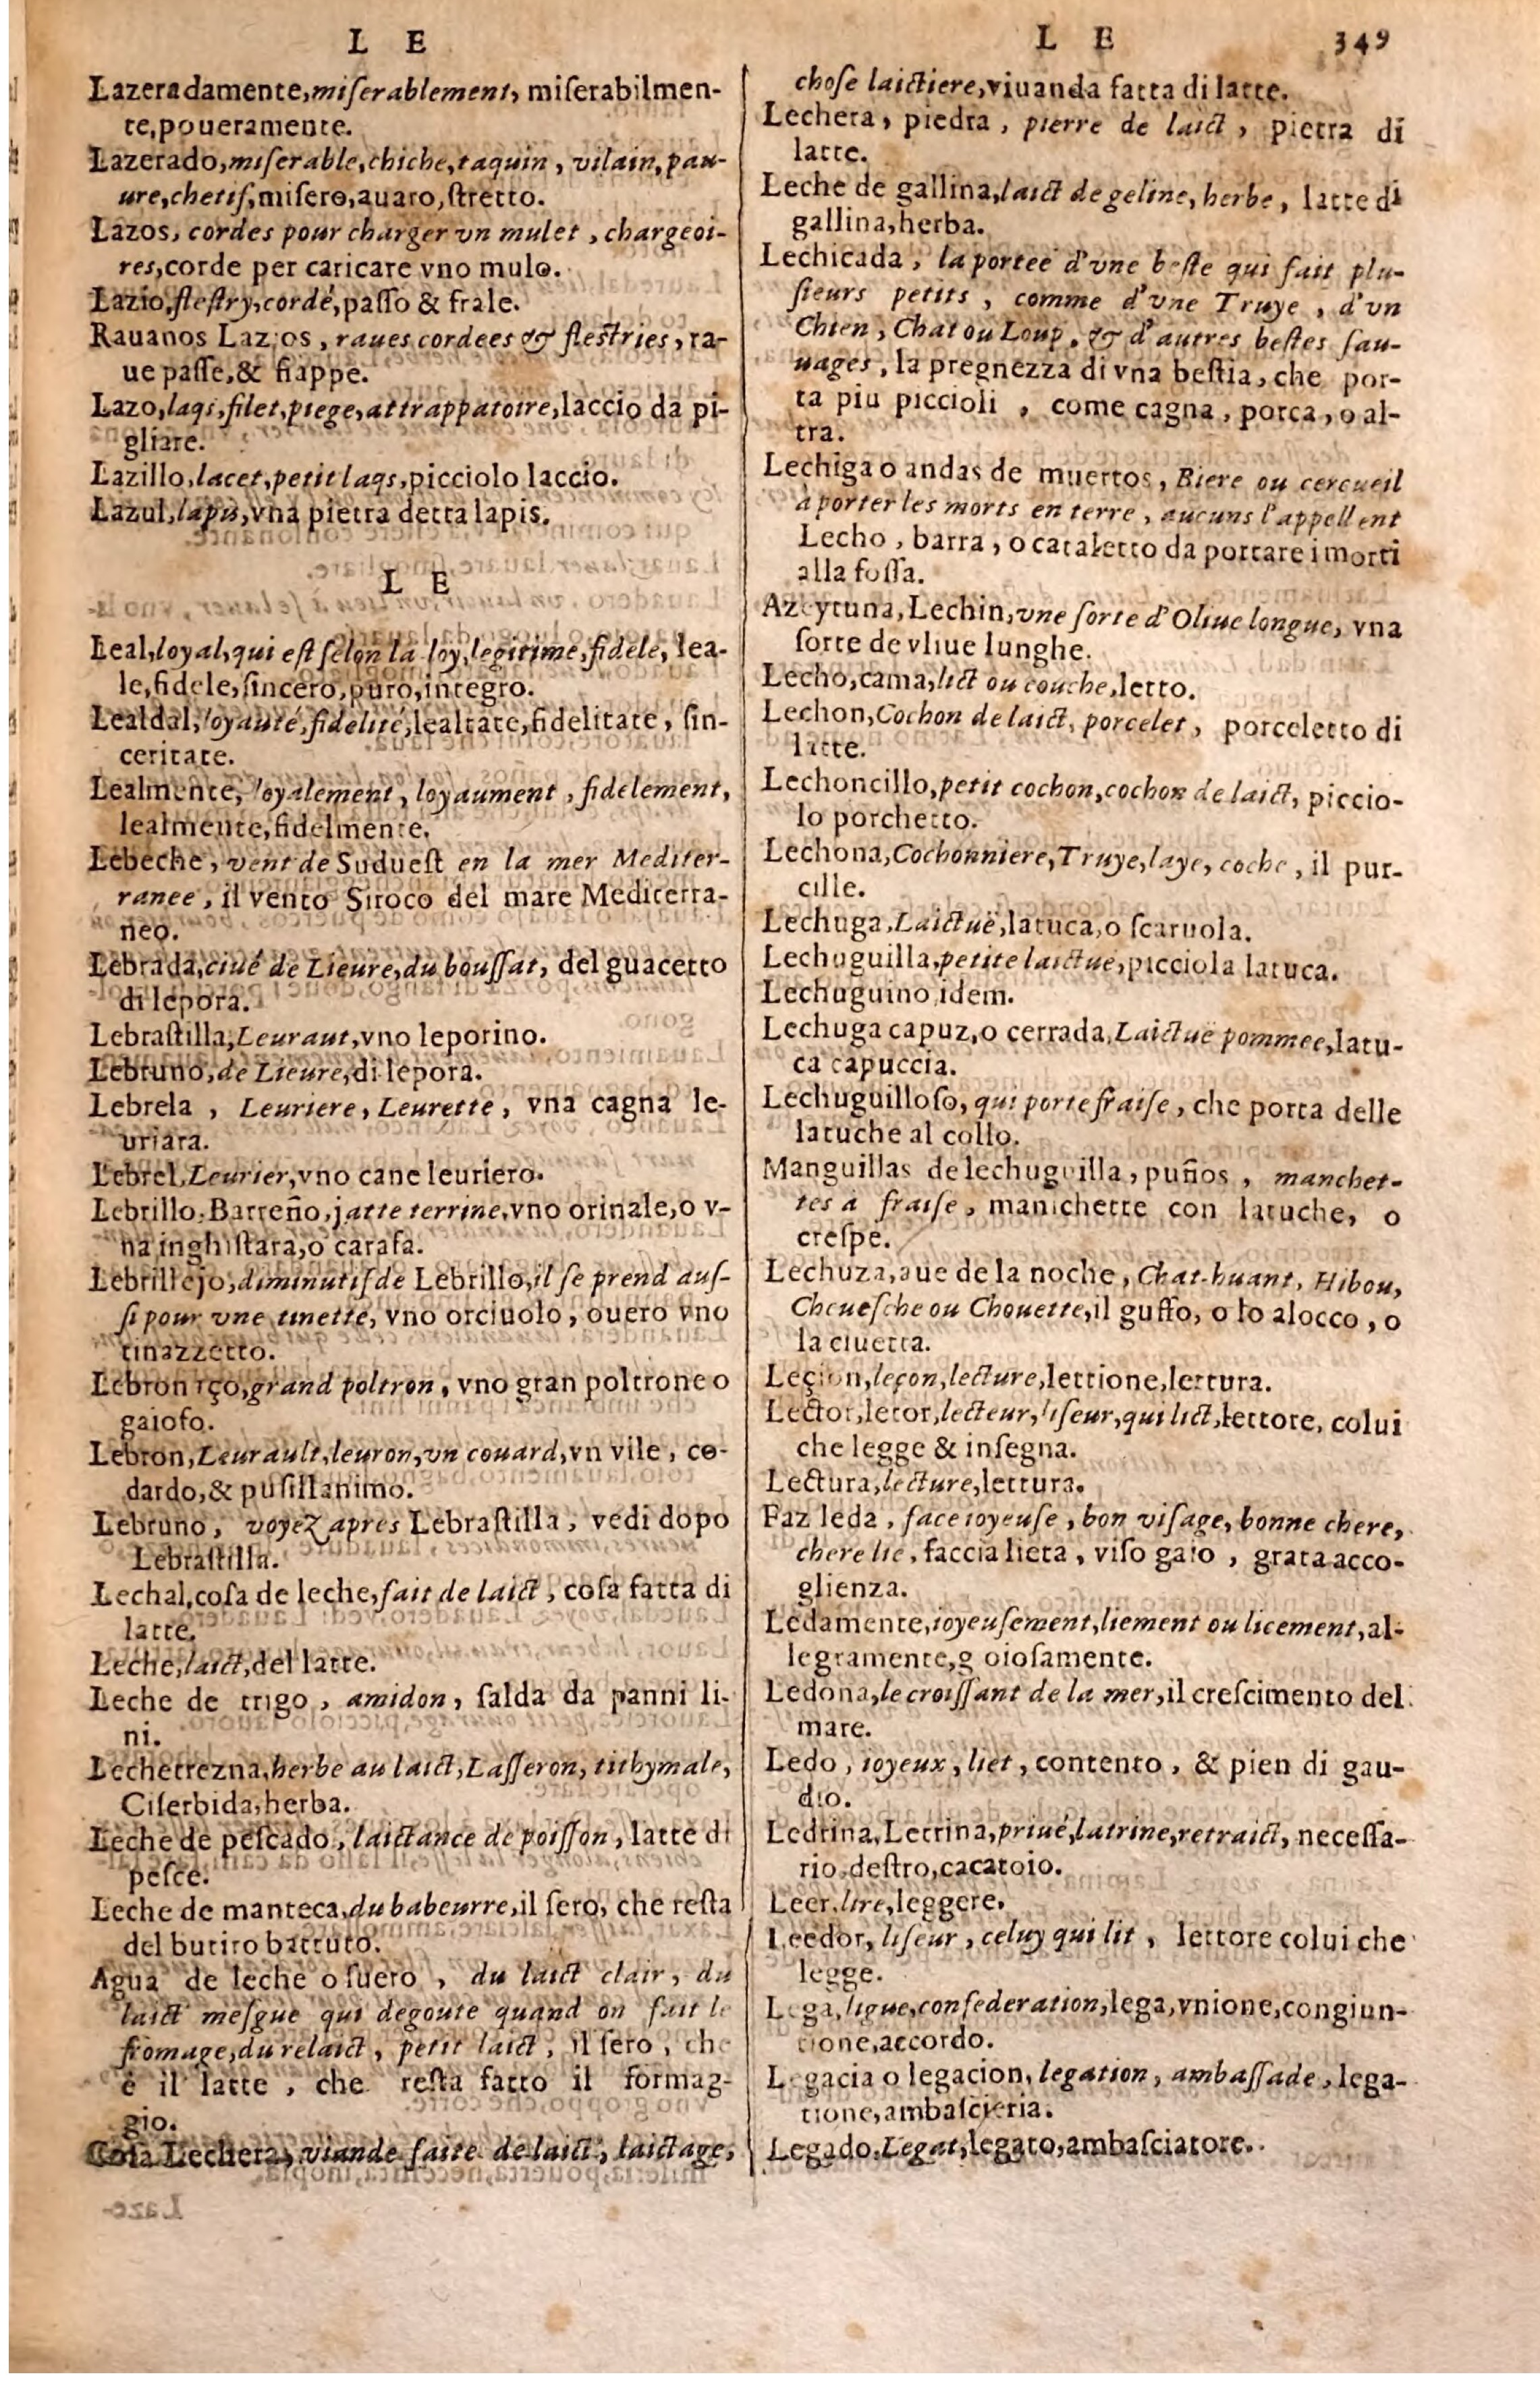 L E
Lazeradamente,miſerablement, miſerabilmen-
te,poueramente.
Lazerado,miſerable,chiche,taquin, vilain,pau-
ure,chetif,miſero,auaro,ſtretto.
Lazos, cordes pour charger vn mulet, chargeoi-
res,corde per caricare vno mulo.
Lazio,fleſtry,cordé,paſſo & frale.
Rauanos Lazios, raues cordees & fleſtries, ra-
ue paſſe,& fiappe.
Lazo,laqs,filet,piege,attrappatoire,laccio da pi-
gliare.
Lazillo,lacet,petit laqs,picciolo laccio.
Lazul,lapis,vna pietra detta lapis.
L E
Leal,loyal,qui eſt ſelon la loy,legitime,fidele, lea-
le,fidele,ſincero,puro,integro.
Lealdal,loyauté,fidelité,lealtate,fidelitate, ſin-
ceritate.
Lealmente, loyalement, loyaument, fidelement,
lealmente,fidelmente.
Lebeche, vent de Sudueſt en la mer Mediter-
ranee, il vento Siroco del mare Mediterra-
neo.
Lebrada,ciué de Lieure,du bouſſat, del guacetto
di lepora.
Lebraſtilla,Leuraut,vno leporino.
Lebruno,de Lieure,di lepora.
Lebrela, Leuriere, Leurette, vna cagna le-
uriara.
Lebrel,Leurier,vno cane leuriero.
Lebrillo,Barreño,jatte terrine,vno orinale,o v-
na inghiſtara,o carafa.
Lebrillejo,diminutif de Lebrillo,il ſe prend auſ-
ſi pour vne tinette, vno orciuolo, ouero vno
tinazzetto.
Lebronaço,grand poltron, vno gran poltrone o
gaiofo.
Lebron,Leurault,leuron,vn couard,vn vile, co-
dardo,& puſillanimo.
Lebruno, voyez apres Lebraſtilla, vedi dopo
Lebraſtilla.
Lechal,coſa de leche,fait de laict, coſa fatta di
latte.
Leche,laict,del latte.
Leche de trigo, amidon, ſalda da panni li-
ni.
Lechetrezna,herbe au laict,Laſſeron, tithymale,
Ciſerbida,herba.
Leche de peſcado, laictance de poiſſon, latte di
peſce.
Leche de manteca,du babeurre,il ſero, che reſta
del butiro battuto.
Agua de leche o ſuero, du laict clair, du
laict meſgue qui degoute quand on fait le
fromage,du relaict, petit laict, il ſero, che
è il latte, che reſta fatto il formag-
gio.
Coſa Lechera, viande faite de laict, laictage,
L E 349
choſe laictiere,viuanda fatta di latte.
Lechera, piedra, pierre de laict, pietra di
latte.
Leche de gallina,laict de geline, herbe, latte di
gallina,herba.
Lechicada, la portee d'vne beſte qui fait plu-
ſieurs petits, comme d'vne Truye, d'vn
Chien, Chat ou Loup, & d'autres beſtes ſau-
uages, la pregnezza di vna beſtia, che por-
ta piu piccioli, come cagna, porca, o al-
tra.
Lechiga o andas de muertos, Biere ou cercueil
à porter les morts en terre, aucuns l'appellent
Lecho, barra, o cataletto da portare i morti
alla foſſa.
Azeytuna,Lechin,vne ſorte d'Oliue longue, vna
ſorte de vliue lunghe.
Lecho,cama,lict ou couche,letto.
Lechon,Cochon de laict, porcelet, porceletto di
latte.
Lechoncillo,petit cochon,cochon de laict, piccio-
lo porchetto.
Lechona,Cochonniere,Truye,laye, coche, il pur-
cille.
Lechuga,Laictuë,latuca,o ſcaruola.
Lechuguilla,petite laictuë,picciola latuca.
Lechuguino,idem.
Lechuga capuz,o cerrada,Laictuë pommee,latu-
ca capuccia.
Lechuguilloſo, qui porte fraiſe, che porta delle
latuche al collo.
Manguillas de lechuguilla, puños, manchet-
tes a fraiſe, manichette con latuche, o
creſpe.
Lechuza,aue de la noche, Chat-huant, Hibou,
Cheueſche ou Chouette,il guffo, o lo alocco, o
la ciuetta.
Leçion,leçon,lecture,lettione,lettura.
Lector,letor,lecteur,liſeur,qui lict,lettore, colui
che legge & inſegna.
Lectura,lecture,lettura.
Faz leda, face ioyeuſe, bon viſage, bonne chere,
chere lie, faccia lieta, viſo gaio, grata acco-
glienza.
Ledamente,ioyeuſement,liement ou licement,al-
legramente,gioioſamente.
Ledona,le croiſſant de la mer,il creſcimento del
mare.
Ledo, ioyeux, liet, contento, & pien di gau-
dio.
Ledrina,Letrina,priué,latrine,retraict, neceſſa-
rio,deſtro,cacatoio.
Leer,lire,leggere.
Leedor, liſeur, celuy qui lit, lettore colui che
legge.
Lega,ligue,confederation,lega,vnione,congiun-
tione,accordo.
Legacia o legacion, legation, ambaſſade, lega-
tione,ambaſcieria.
Legado,Legat,legato,ambaſciatore.